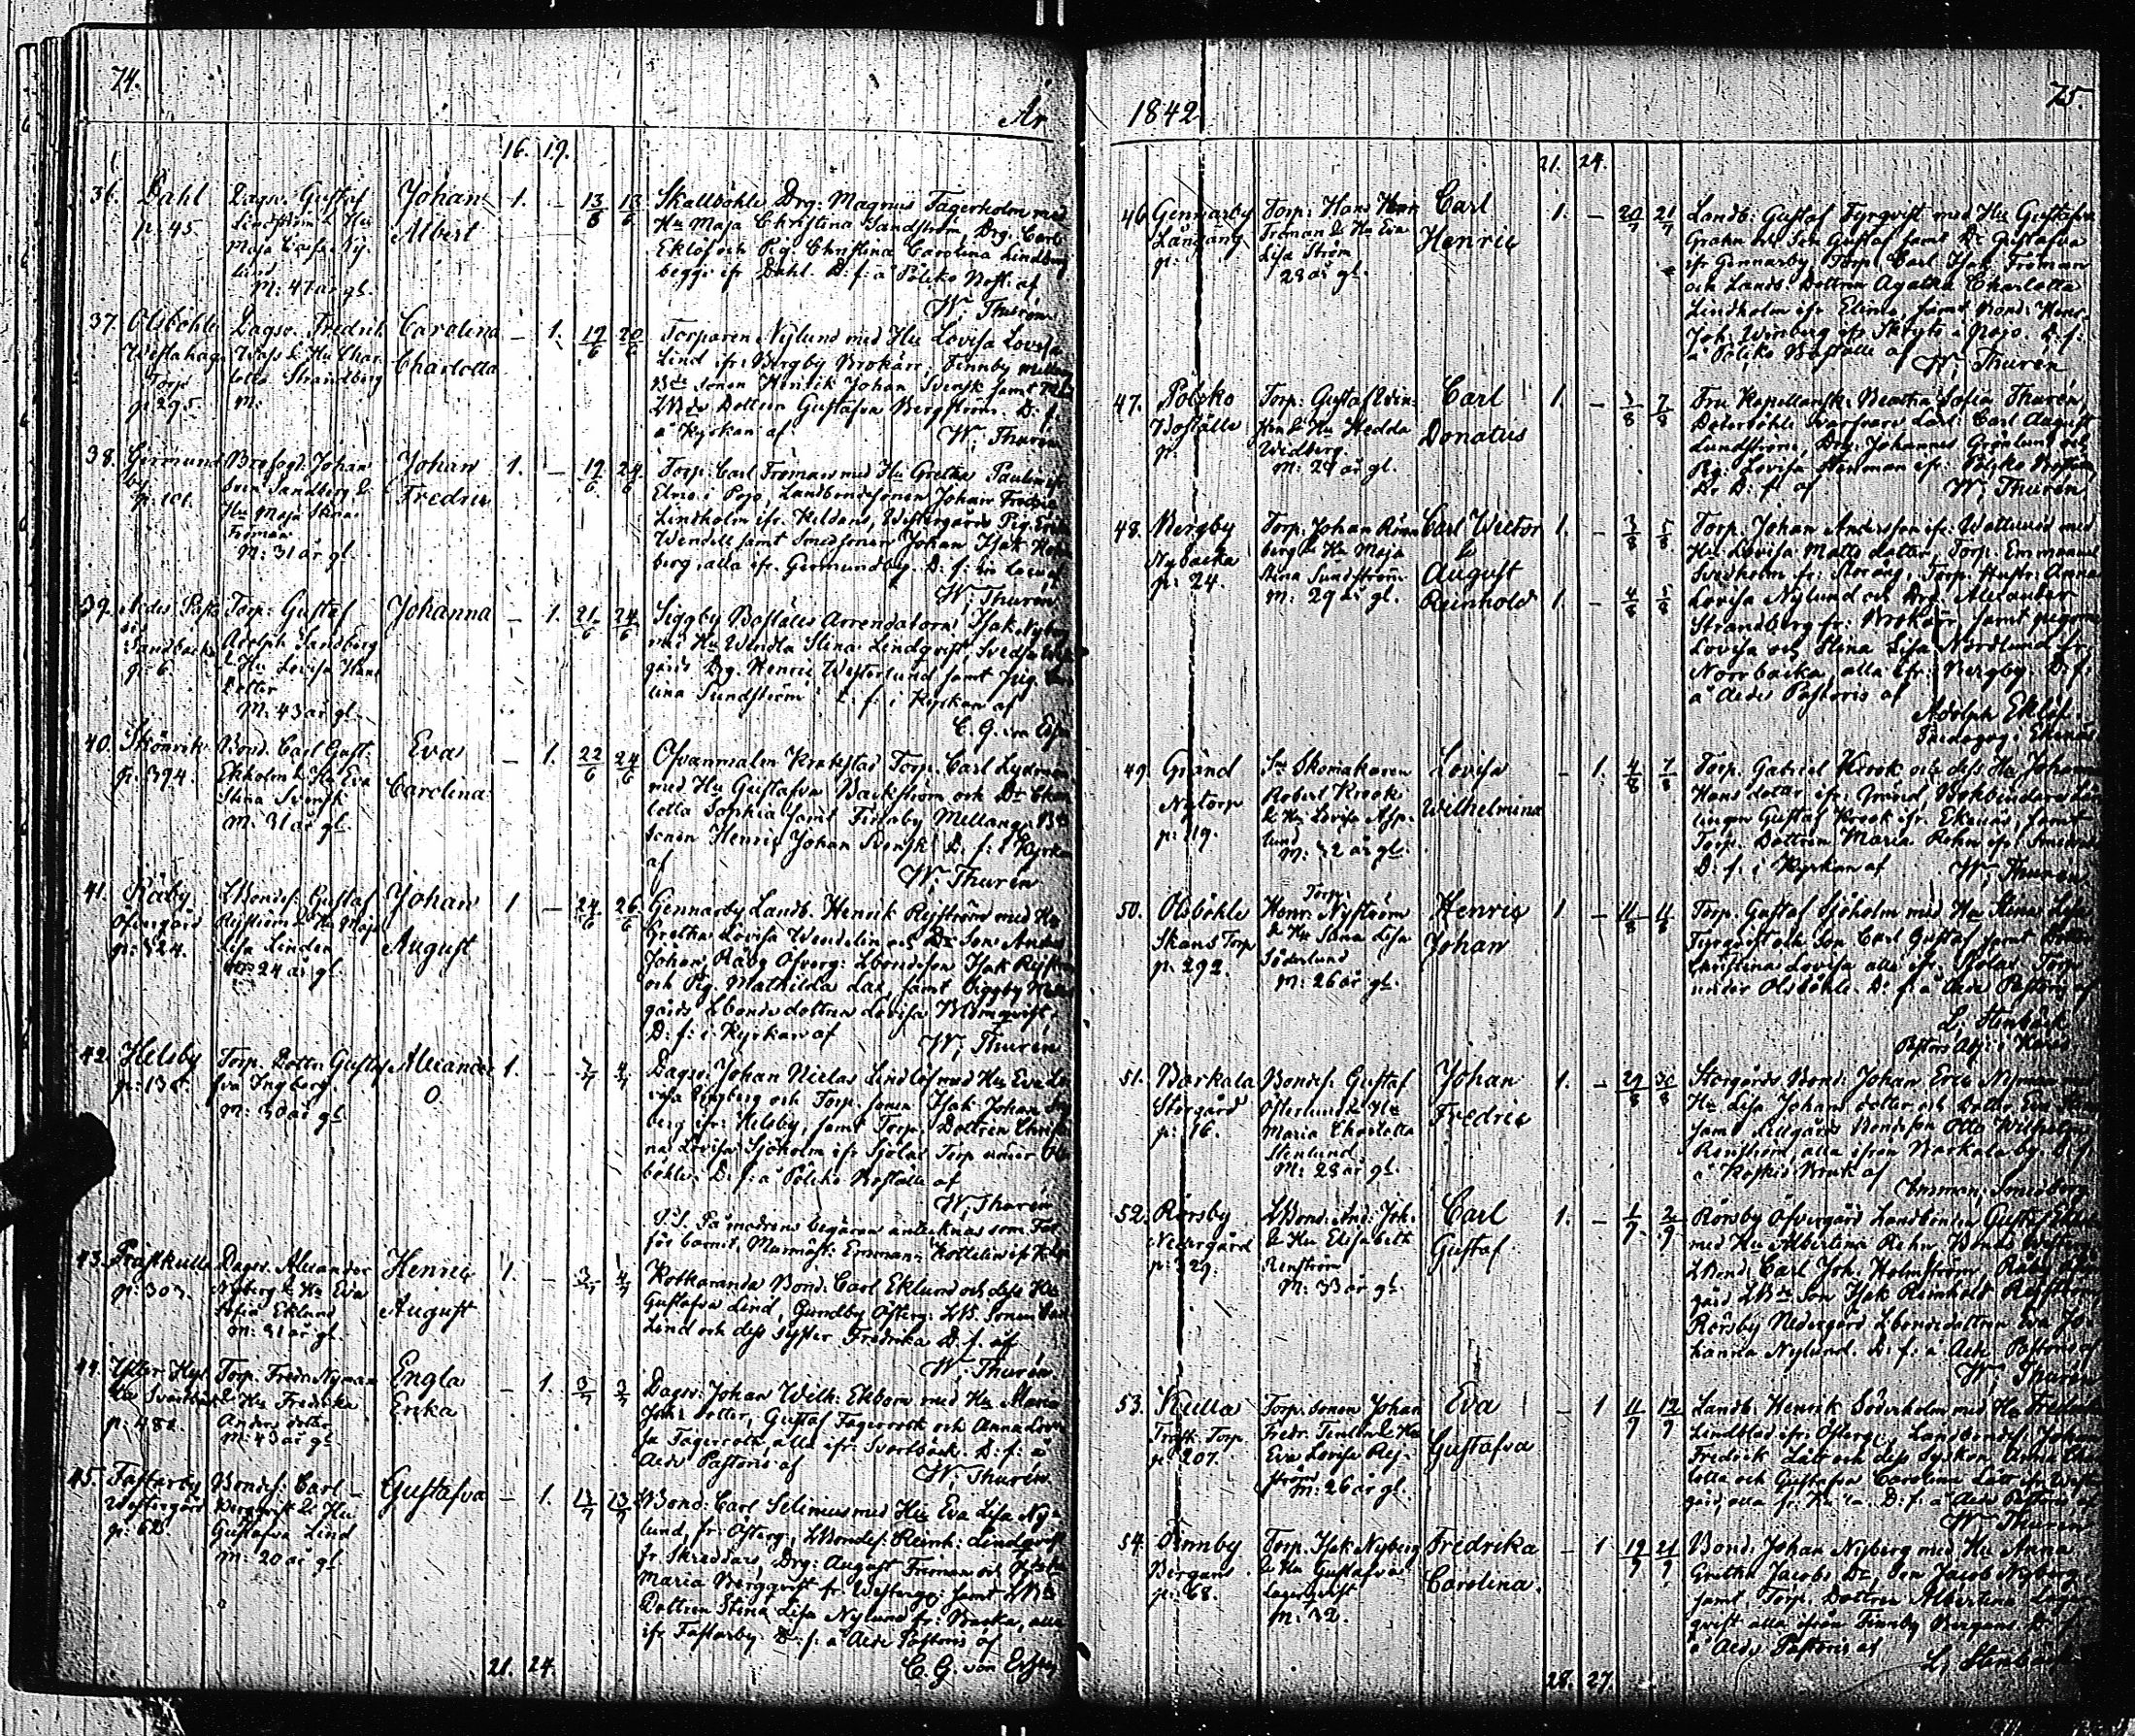 74.
År
16. 19.
36. Dahl
p. 45.
Dagsv. Gustaf
Lindström & Hu
Maja Caisa Ny-
lund
M: 47 år gl.
Johan
Albert
1. – 13/6 13/6
Skallböhle Drg: Magnus Fagerholm med
Hu Maja Christina Sandström, Drg. Carl
Eklöf och Pig. Christina Carolina Lindberg
begge ifr Dahl. D: f: å Pölsko Bost: af
W: Thurén
37. Olsböhle
Westahage
Torp
p. 295.
Dagsv. Fredrik
Wass & Hu Char-
lotta Strandberg
M:
Carolina
Charlotta
– 1. 19/6 20/6
Torparen Nylund med Hu Lovisa Lovisa
Lind ifr. Bergby Brokärr, Finnby Mellang
Bde sonen Henrik Johan Svensk samt
Dottren Gustafva Bergström. D: f:
å Kyrkan af
W: Thurén
38. Germund
by
p. 101.
Brofogd. Johan
Sandberg &
Hu Maja Stina
Froman
M: 31 år gl.
Johan
Fredric
1. – 19/6 24/6
Torp. Carl Froman med Hu Gretha Paulin ifr
Elmo i Pojo, Landbondesonen Johan Fredric
Lindholm ifr. Kildans, Westergårds Pig. Erika
Wendell samt Smedsonen Johan Isak
berg, alla ifr. Germundby. D: f:
W: Thurén
39. Aedes Pasto
ris
Sandbacka
p. 6.
Torp. Gustaf
Adolph Sandberg
& Hu Lovisa Hans
Dotter
M: 43 år gl.
Johanna
– 1. 21/6 24/6
Siggby Boställes Arrendatorn Isak Nyberg
med Hu Wendla Stina Lindqvist, Svedja
gårds Drg. Henric Westerlund samt Pig.
lina Sundström. D: f: i Kyrkan af
C. G. von Essen
40.
p. 394.
Bond. Carl Gust.
Ekholm & Hu Eva
Stina Svensk
M. 31 år gl.
Eva
Carolina
– 1. 22/6 24/6
Ofvanmalm Krakstad Torp. Carl
med Hu Gustafva Backström och Dr Char-
lotta Sophia samt Finnby Mellang. Bd
sonen Henric Johan Svensk. D: f: i Kyrkan
af
W: Thurén
41. Råby
Öfvergård
p. 324.
LBondes. Gustaf
Rejström & Hu Maja
Lisa Linden
M: 24 år gl.
Johan
August
1 – 24/6 26/6
Gennarby Landb. Henrik Rejström med Hu
Gretha Lovisa Wendelin och Ds Son Anders
Johan, Råby Öfverg: Lbondeson Isak Rejström
och Pig. Mathilda samt Siggby
gårds Lbonde dottren Lovisa Blomqvist.
D: f: i Kyrkan af
W: Thurén
42. Helsby
p. 130.
Torp. Dottr. Gustaf-
fva Ingberg.
M: 30 år gl.
Alexander
0
1. – 3/7 4/7
Dagsv. Johan Niclas Lindlöf med Hu Eva Lo-
visa Engberg och Torp. sonen Isak Johan
berg ifr. Helsby, samt Torp. Dottren Christi
na Lovisa Sjöholm ifr Sjölas Torp under Ols
böhle. D: f: å Pölsko Boställe af
W: Thurén
P.S. På modrens begäran antecknas som Far
för barnet, Murmäst. Emman: Kottelin
43. Prästkulla
p. 303.
Dagsv. Alexander
Nyberg & Hu Eva
Sofia Eklund
M: 31 år gl.
Henric
August
1. – 3/7 4/7
Kotkaranda Bond. Carl Eklund och dess Hu
Gustafva Lind, Gundby Österg: LB. Sonen Carl
Lind och dess Syster Fredrika. D: f: af
W: Thurén
44.
Svartbäck
p. 480.
Torp. Fredr. Nyman
& Hu Fredrika
Anders dotter
M: 43 år gl.
Engla
Erika
– 1. 3/7 3/7
Dagsv. Johan Wilh: Ekbom med Hu Maria
Joh: dotter, Gustaf Fagerroth och Anna Lovi
sa Fagerroth, alla ifr. Svartbäck. D: f: å
Aede Pastoris af
W: Thurén
45. Fastarby
Westergård
p. 62.
Bondes. Carl
Bergqvist & Hu
Gustafva Lind
M: 20 år gl.
Gustafva
– 1. 13/7 13/7
Bond: Carl Selenius med Hu Eva Lisa Ny-
lund, fr. Österg., LBondes. Reinh: Lindqvist
fr. Skreddars, Drg: August Froman och
Maria Bergqvist fr. Westergg. samt LBds
Dottren Stina Lisa Nylund fr. Backa, alla
ifr Fastarby. D: f: å Aede Pastoris af
C. G. von Essen
21. 24.
1842
75
21. 24.
46. Gennarby
Långäng
p.
Torp: Hans
Froman & Hu Eva
Lisa Ström
28 år gl.
Carl
Henric
1. – 20/7 21/7
Landb: Gustaf Fyrqvist med Hu Gustafva
Grahn och Son Gustaf samt Dr Gustafva
ifr Gennarby, Torp. Carl Isak Froman
och Landb: Dottren Agatha Charlotta
Lindholm ifr Elimo, samt Bond: Hens.
Joh: Winberg ifr. Skryts i Pojo. D. f:
å Pölsko Boställe af W: Thurén
47. Polsko
Boställe
p.
Torp. Gustaf Win-
& Hu Hedda
Widberg.
M: 24 år gl.
Carl
Donatus
1. – 3/8 7/8
Fru Kapellansk. Beatha Sofia Thurén,
Doterböhle Svarfvare Lärl: Carl August
Lundström, Drg. Johannes Grönlund och
Pig. Lovisa Stenman ifr: Pölsko Bost.
Dr D: f: af W: Thurén
48. Bergby
Nybacka
p: 24.
Torp. Johan
berg & Hu Maja
Stina Sundström
M: 29 år gl.
Carl Wictor
&
August
Reinhold
1. – 3/8 5/8
1. – 4/8 5/8
Torp. Johan Andersson ifr: med
Hu Lovisa Matts dotter, Torp. Emmanuel
Svedholm fr: Storäng, Torp. Hustr: Anna
Lovisa Nylund och Drg. Alexander
Strandberg fr: Brokärr, samt pigorna
Lovisa och Stina Lisa Nordlund fr.
Norrbacka, alla ifr: Bergby. D: f:
å Aedes Pastoris af
Adolph Eklöf
Pædagog i Ekenäs
49. Gränd
Nytorp
p: 119.
Sn Skomakaren
Robert Krook
& Hu Lovisa Asp-
lund
M: 32 år gl.
Lovisa
Wilhelmina
– 1. 4/8 7/8
Torp. Gabriel Krook och dess Hu Johanna
Hans dotter ifr. Gränd, Bokbindare Lär-
lingen Gustaf Krook ifr. Ekenäs, samt
Torp. Dottren Maria Rehn ifr.
D: f: i Kyrkan af W: Thurén
50. Olsböhle
Skans Torp
p. 292.
Torp.
Henr: Nyström
& Hu Sana Lisa
Söderlund
M: 26 år gl.
Henric
Johan
1 – 11/8 11/8
Torp. Gustaf Sjöholm med Hu Stina Lisa
Fyrqvist och Son Carl Gustaf samt Dotter
Christina Lovisa alla ifr. Sjölas Torp
under Olsböhle. D: f: å Aede Pastoris af
L: Stenbäck
Pastors Adj. i Karis
51. Barkala
Storgård
p: 16.
Bondes. Gustaf
Österlund & Hu
Maria Charlotta
Stenlund
M: 28 år gl.
Johan
Fredric
1. – 29/8 30/8
Storgårds Bond: Johan Eric Nyman med
Hu Lisa Johans dotter och Dotter Eva
samt Lillgårds Bondeson Otto Wilhelm
Renström, alla ifrån Barkala by. D. f.
å Koskis Bruk af
52. Rörsby
Nedergård
p: 329.
LBond: And: Joh.
& Hu Elisabeth
Renström
M: 33 år gl.
Carl
Gustaf
1. – 1/9 2/9
Rörsby Öfvergård Landbonden Gustaf
med Hu Albertina Rehn, Bonds
LBond: Carl Joh. Holmström, Råby
gård LBde Son Isak Reinhold Rejström,
Rörsby Nedergård Lbondedottren Eva Jo-
hanna Nylund. D: f: å Aede Pastoris af
W: Thurén
53. Kulla
Träsk: Torp
p. 207.
Torp. sonen Johan
Fredr. & Hu
Eva Lovisa Rej-
ström
M: 26 år gl.
Eva
Gustafva
– 1 11/9 12/9
Landb: Henrik Söderholm med Hu Fredrika
Lindblad ifr: Österg:, Landbondes. Johan
Fredrik Lätt och dess Syskon Anna Char
lotta och Gustafva Carolina Lätt ifr West
gård, alla fr. Kulla. D: f: å Aede Pastoris af
W: Thurén
54. Finnby
Bergans
p: 68.
Torp. Isak Nyberg
& Hu Gustafva
Lagerqvist
M: 32.
Fredrika
Carolina.
– 1 19/9 21/9
Bond: Johan Nyberg med Hu Anna
Gretha Jacobs Dr, Son Jacob Nyberg,
samt Torp. Dottren Albertina Lager
qvist alla ifrån Finnby Bergans. D: f:
å Aede Pastoris af
L: Stenbäck
28. 27.